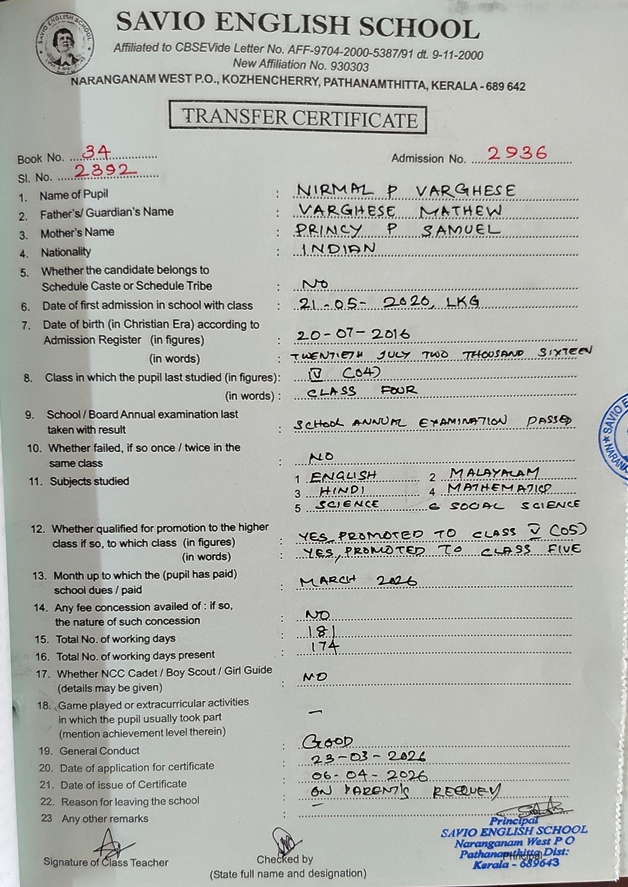 SAVIO ENGLISH SCHOOL
Affiliated to CBSEVide Letter No. AFF-9704-2000-5387/91 dt. 9-11-2000
New Affiliation No. 930303
NARANGANAM WEST P.O., KOZHENCHERRY, PATHANAMTHITTA, KERALA - 689 642
TRANSFER CERTIFICATE
Book No. 34
Admission No. 2936
Sl. No. 2392
1. Name of Pupil : NIRMAL P VARGHESE
2. Father's/ Guardian's Name : VARGHESE MATHEW
3. Mother's Name : PRINCY P SAMUEL
4. Nationality : INDIAN
5. Whether the candidate belongs to
Schedule Caste or Schedule Tribe : NO
6. Date of first admission in school with class : 21-05-2020, LKG
7. Date of birth (in Christian Era) according to
Admission Register (in figures) : 20-07-2016
(in words) : TWENTIETH JULY TWO THOUSAND SIXTEEN
8. Class in which the pupil last studied (in figures): (04)
(in words) : CLASS FOUR
9. School / Board Annual examination last
taken with result : SCHOOL ANNUAL EXAMINATION PASSED
10. Whether failed, if so once / twice in the
same class : NO
11. Subjects studied : 1 ENGLISH 2 MALAYALAM
3 HINDI 4 MATHEMATICS
5 SCIENCE 6 SOCIAL SCIENCE
12. Whether qualified for promotion to the higher
class if so, to which class (in figures) : YES, PROMOTED TO CLASS V (05)
(in words) : YES, PROMOTED TO CLASS FIVE
13. Month up to which the (pupil has paid)
school dues / paid : MARCH 2026
14. Any fee concession availed of : if so,
the nature of such concession : NO
15. Total No. of working days : 181
16. Total No. of working days present : 174
17. Whether NCC Cadet / Boy Scout / Girl Guide
(details may be given) : NO
18. Game played or extracurricular activities
in which the pupil usually took part : —
(mention achievement level therein)
19. General Conduct : GOOD
20. Date of application for certificate : 23-03-2026
21. Date of issue of Certificate : 06-04-2026
22. Reason for leaving the school : ON PARENT'S
23 Any other remarks : —
Signature of Class Teacher
Checked by
(State full name and designation)
Principal
SAVIO ENGLISH SCHOOL
Naranganam West P O
Pathanamthitta Dist:
Kerala - 689643